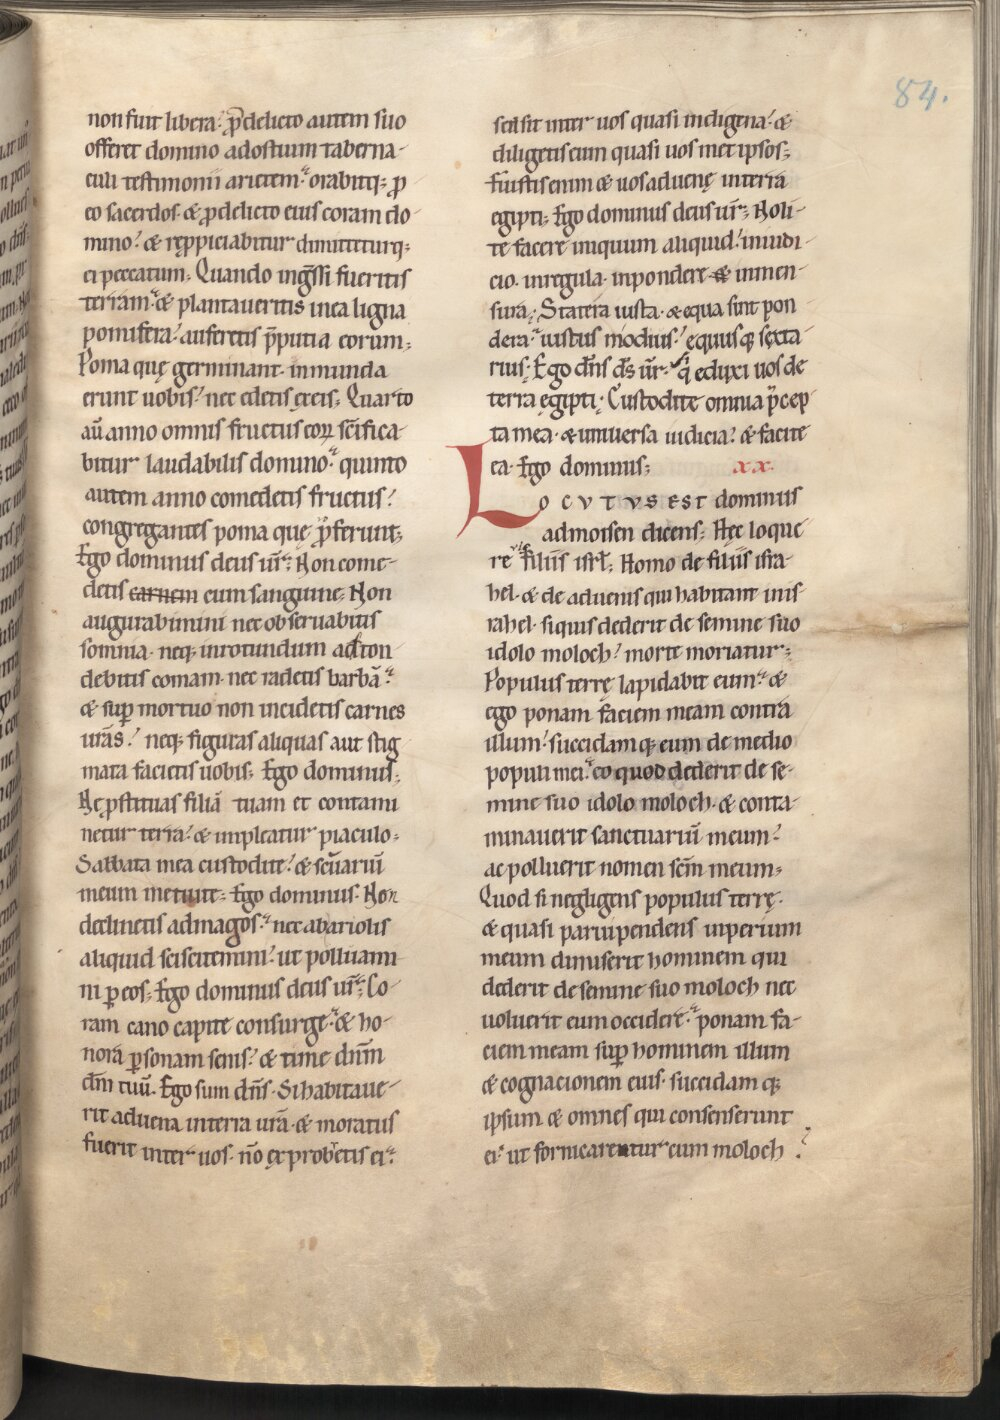 84.
non fuit libera. p̄ delicto autem suo
offeret domino ad ostium taberna-
culi testimonii arietem. orabitq; ꝓ
eo sacerdos. & ꝓ delicto eius coram do-
mino. & rep̱piciabitur dimitteturq;
ei peccatum. Quando ing̃ssi fueritis
terram. & plantaveritis in ea ligna
pomifera. auferetis p̄putia eorum.
Poma quę germinant. inmunda
erunt uobis. nec edetis ex eis. Quarto
aū anno omnis fructus eoꝝ sc̄ifica-
bitur laudabilis domino. quinto
autem anno comedetis fructus.
congregantes poma quę ꝓferunt.
Ego dominus deus ur̄. Non come-
detis carnem cum sanguine. Non
augurabimini nec observabitis
somnia. neq; in rotundum adton-
debitis comam. nec radetis barbā.
& sup̱ mortuo non incidetis carnes
urās. neq; figuras aliquas aut stig
mata facietis uobis. Ego dominus.
Ne ꝓstituas filiā tuam et contami
netur terra. & impleatur piaculo.
Sabbata mea custodite. & sc̄uariū
meum metuite. Ego dominus. Non
declinetis ad magos. nec ab ariolis
aliquid sciscitemini. ut polluami
ni p̱ eos. Ego dominus deus ur̄. Co-
ram cano capite consurge. & ho-
nora p̱sonam senis. & time dn̄m
dm̄ tuū. Ego sum dn̄s. Si habitave-
rit advena in terra urā. & moratus
fuerit inter vos. nō exprobretis ei.
sed sit inter uos quasi indigena. &
diligetis eum quasi uosmet ipsos.
Fuistis enim & uos advenę in terra
egipti. Ego dominus deus ur̄. Noli-
te facere iniquum aliquid. in iudi-
cio. in regula. in pondere & in men-
sura. Statera iusta. & equa sint pon
dera. iustus modius. equusq; sexta
rius. Ego dn̄s ds̄ ur̄. q̄ eduxi uos de
terra egipti. Custodite omnia p̄cep
ta mea. & universa iudicia. & facite
ea. Ego dominus. xx.
LOCVTVS EST dominus
ad moisen dicens. Hęc loque
re filiis isrl̄. Homo de filiis isra-
hel. & de advenis qui habitant in is-
rahel. siquis dederit de semine suo
idolo moloch. morte moriatur.
Populus terrę lapidabit eum. &
ego ponam faciem meam contra
illum. succidamq; eum de medio
populi mei. eo quod dederit de se-
mine suo idolo moloch. & conta-
minaverit sanctuariū meum.
ac polluerit nomen sc̄m meum.
Quod si negligens populus terrę.
& quasi parvipendens imperium
meum dimiserit hominem qui
dederit de semine suo moloch nec
voluerit eum occidere. ponam fa-
ciem meam sup̱ hominem illum
& cognacionem eius. succidamq;
ipsum & omnes qui consenserunt
ei. ut fornicarentur cum moloch.